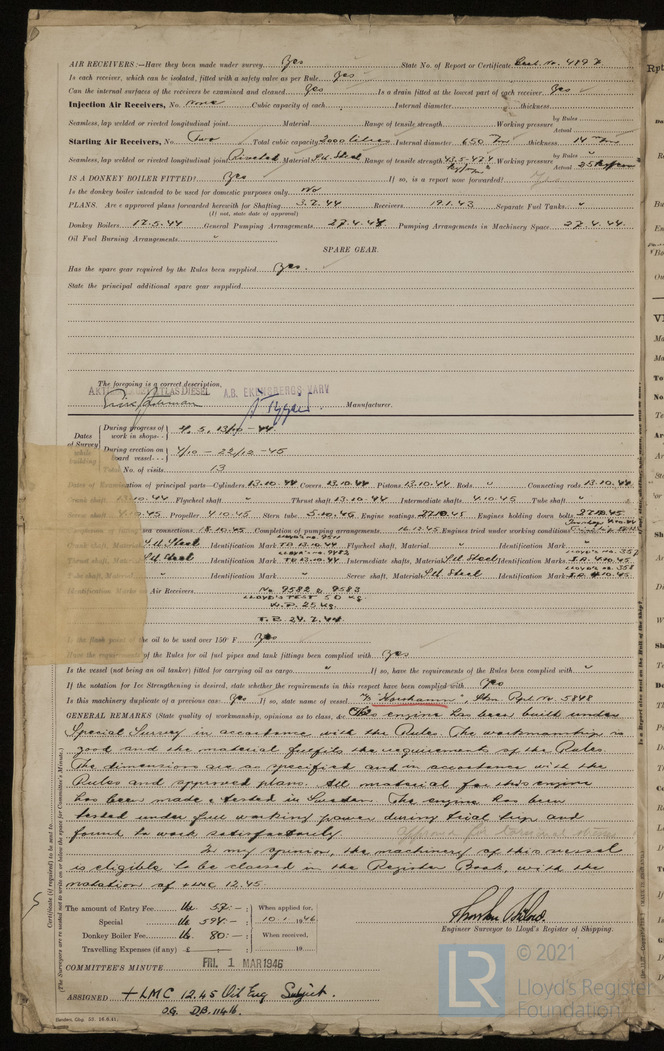 AIR RECEIVERS:—Have they been made under survey Yes State No. of Report or Certificate Cert. No. 419
Is each receiver, which can be isolated, fitted with a safety valve as per Rule Yes
Can the internal surfaces of the receivers be examined and cleaned Yes Is a drain fitted at the lowest part of each receiver Yes
Injection Air Receivers, No. none Cubic capacity of each Internal diameter thickness
Seamless, lap welded or riveted longitudinal joint Material Range of tensile strength Working pressure by Rules Actual
Starting Air Receivers, No. Two Total cubic capacity 2000 litres Internal diameter 650 m/m thickness 14 m/m
Seamless, lap welded or riveted longitudinal joint Riveted Material S.M. Steel Range of tensile strength Working pressure by Rules Actual
IS A DONKEY BOILER FITTED? Yes If so, is a report now forwarded?
Is the donkey boiler intended to be used for domestic purposes only No
PLANS. Are approved plans forwarded herewith for Shafting 3.2.44 Receivers 19.1.43 Separate Fuel Tanks "
(If not, state date of approval)
Donkey Boilers 12.5.44 General Pumping Arrangements Pumping Arrangements in Machinery Space 27.4.44
Oil Fuel Burning Arrangements "
SPARE GEAR.
Has the spare gear required by the Rules been supplied Yes
State the principal additional spare gear supplied
The foregoing is a correct description,
ATLAS DIESEL A.B. EKENSBERGS VARV
Manufacturer.
Dates of Survey while building
During progress of work in shops
During erection on board vessel 22/12-45
Total No. of visits 13
Dates of Examination of principal parts—Cylinders 13.10.44 Covers 13.10.44 Pistons 13.10.44 Rods " Connecting rods 13.10.44
Crank shaft 13.10.44 Flywheel shaft " Thrust shaft 13.10.44 Intermediate shafts 4.10.45 Tube shaft "
Screw shaft 4.10.45 Propeller 4.10.45 Stern tube 5.10.45 Engine seatings 27.10.45 Engines holding down bolts 27.10.45
Completion of fitting sea connections 18.10.45 Completion of pumping arrangements 16.12.45 Engines tried under working conditions
Crank shaft, Material S.M. Steel Identification Mark TD 13.10.44 Flywheel shaft, Material " Identification Mark "
Thrust shaft, Material S.M. Steel Identification Mark TD 13.10.44 Intermediate shafts, Material S.M. Steel Identification Mark
Tube shaft, Material " Identification Mark " Screw shaft, Material S.M. Steel Identification Mark
Identification Marks on Air Receivers No. 9582 & 9583
LLOYD'S TEST 50 Kg.
W.P. 25 Kg.
Is the flash point of the oil to be used over 150° F Yes
Have the requirements of the Rules for oil fuel pipes and tank fittings been complied with Yes
Is the vessel (not being an oil tanker) fitted for carrying oil as cargo " If so, have the requirements of the Rules been complied with "
If the notation for Ice Strengthening is desired, state whether the requirements in this respect have been complied with Yes
Is this machinery duplicate of a previous case Yes If so, state name of vessel Rpt. No. 5848
GENERAL REMARKS (State quality of workmanship, opinions as to class, &c. This engine has been built under
Special Survey in accordance with the Rules. The workmanship is
good and the material fulfils the requirements of the Rules.
The dimensions are as specified and in accordance with the
Rules and approved plans. All material for this engine
has been made & tested in Sweden. The engine has been
tested under full working power during trial trip and
found to work satisfactorily.
In my opinion, the machinery of this vessel
is eligible to be classed in the Register Book, with the
notation of +LMC 12.45.
The amount of Entry Fee Kr. 57:— When applied for,
Special Kr. 594:— 10.1.1946
Donkey Boiler Fee Kr. 80:— When received,
Travelling Expenses (if any) £ : : 19
Engineer Surveyor to Lloyd's Register of Shipping.
COMMITTEE'S MINUTE FRI. 1 MAR 1946
ASSIGNED +LMC 12.45 Oil Eng Subject.
O.G. D.B. 114 lb.
Certificate (if required) to be sent to
(The Surveyors are requested not to write on or below the space for Committee's Minute.)
© 2021
LR
Lloyd's Register
Foundation